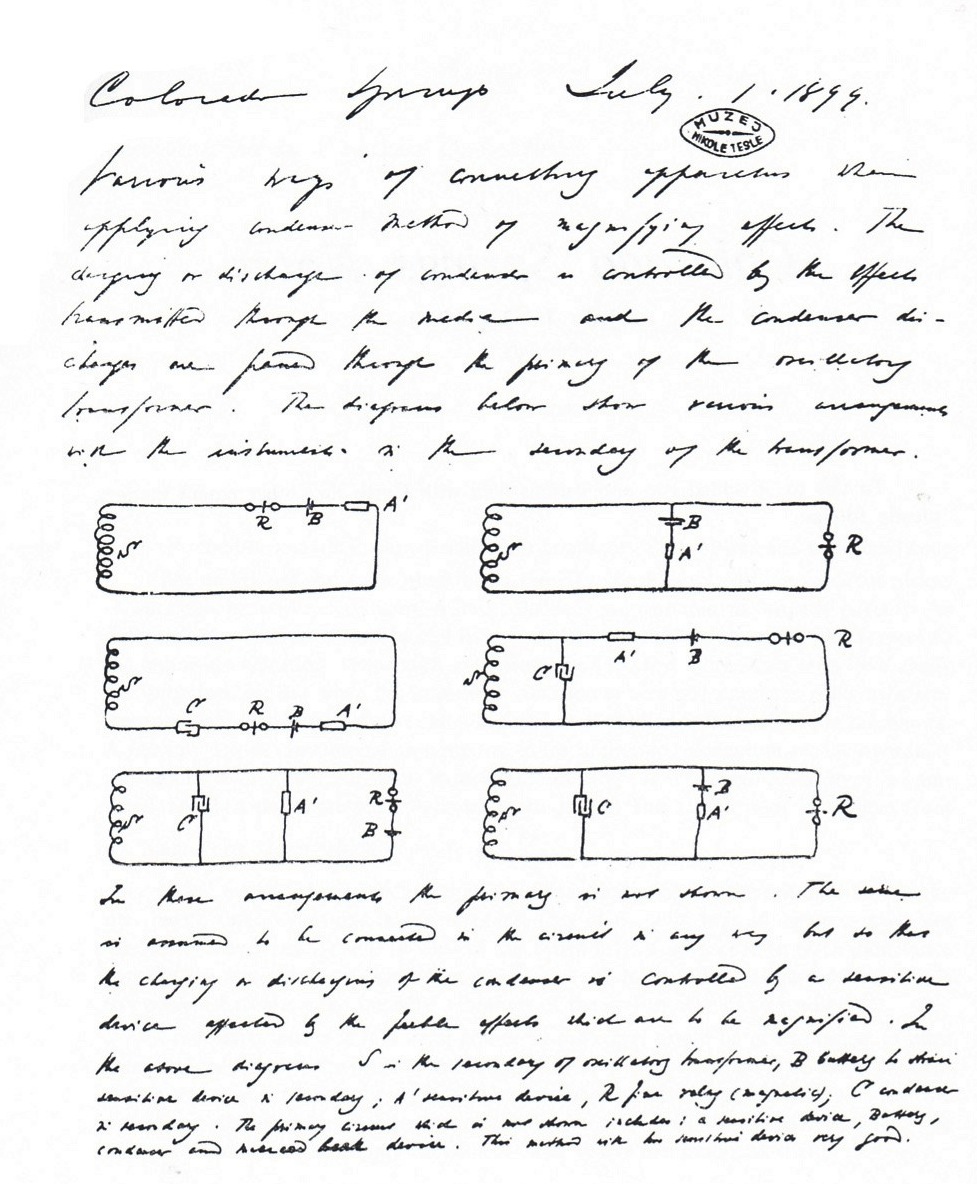 Colorado Springs July. 1. 1899.
MUZEJ
NIKOLE TESLE
Various ways of connecting apparatus when
applying condenser method of magnifying effects. The
charging or discharge of condenser is controlled by the effects
transmitted through the media and the condenser dis-
charges are passed through the primary of the oscillatory
transformer. The diagrams below show various arrangements
with the instruments in the secondary of the transformer.
S R B A'
S B A' R
S C R B A'
S C A' B R
S C A' R B
S C B A' R
In these arrangements the primary is not shown. The same
is assumed to be connected in the circuit in any way but so that
the charging or discharging of the condenser is controlled by a sensitive
device affected by the feeble effects which are to be magnified. In
the above diagrams S is the secondary of oscillatory transformer, B battery to strain
sensitive device in secondary; A' sensitive device, R fine relay (magnetic), C condenser
in secondary. The primary circuit which is not shown includes: a sensitive device, Battery,
condenser and break device. This method with two sensitive device very good.